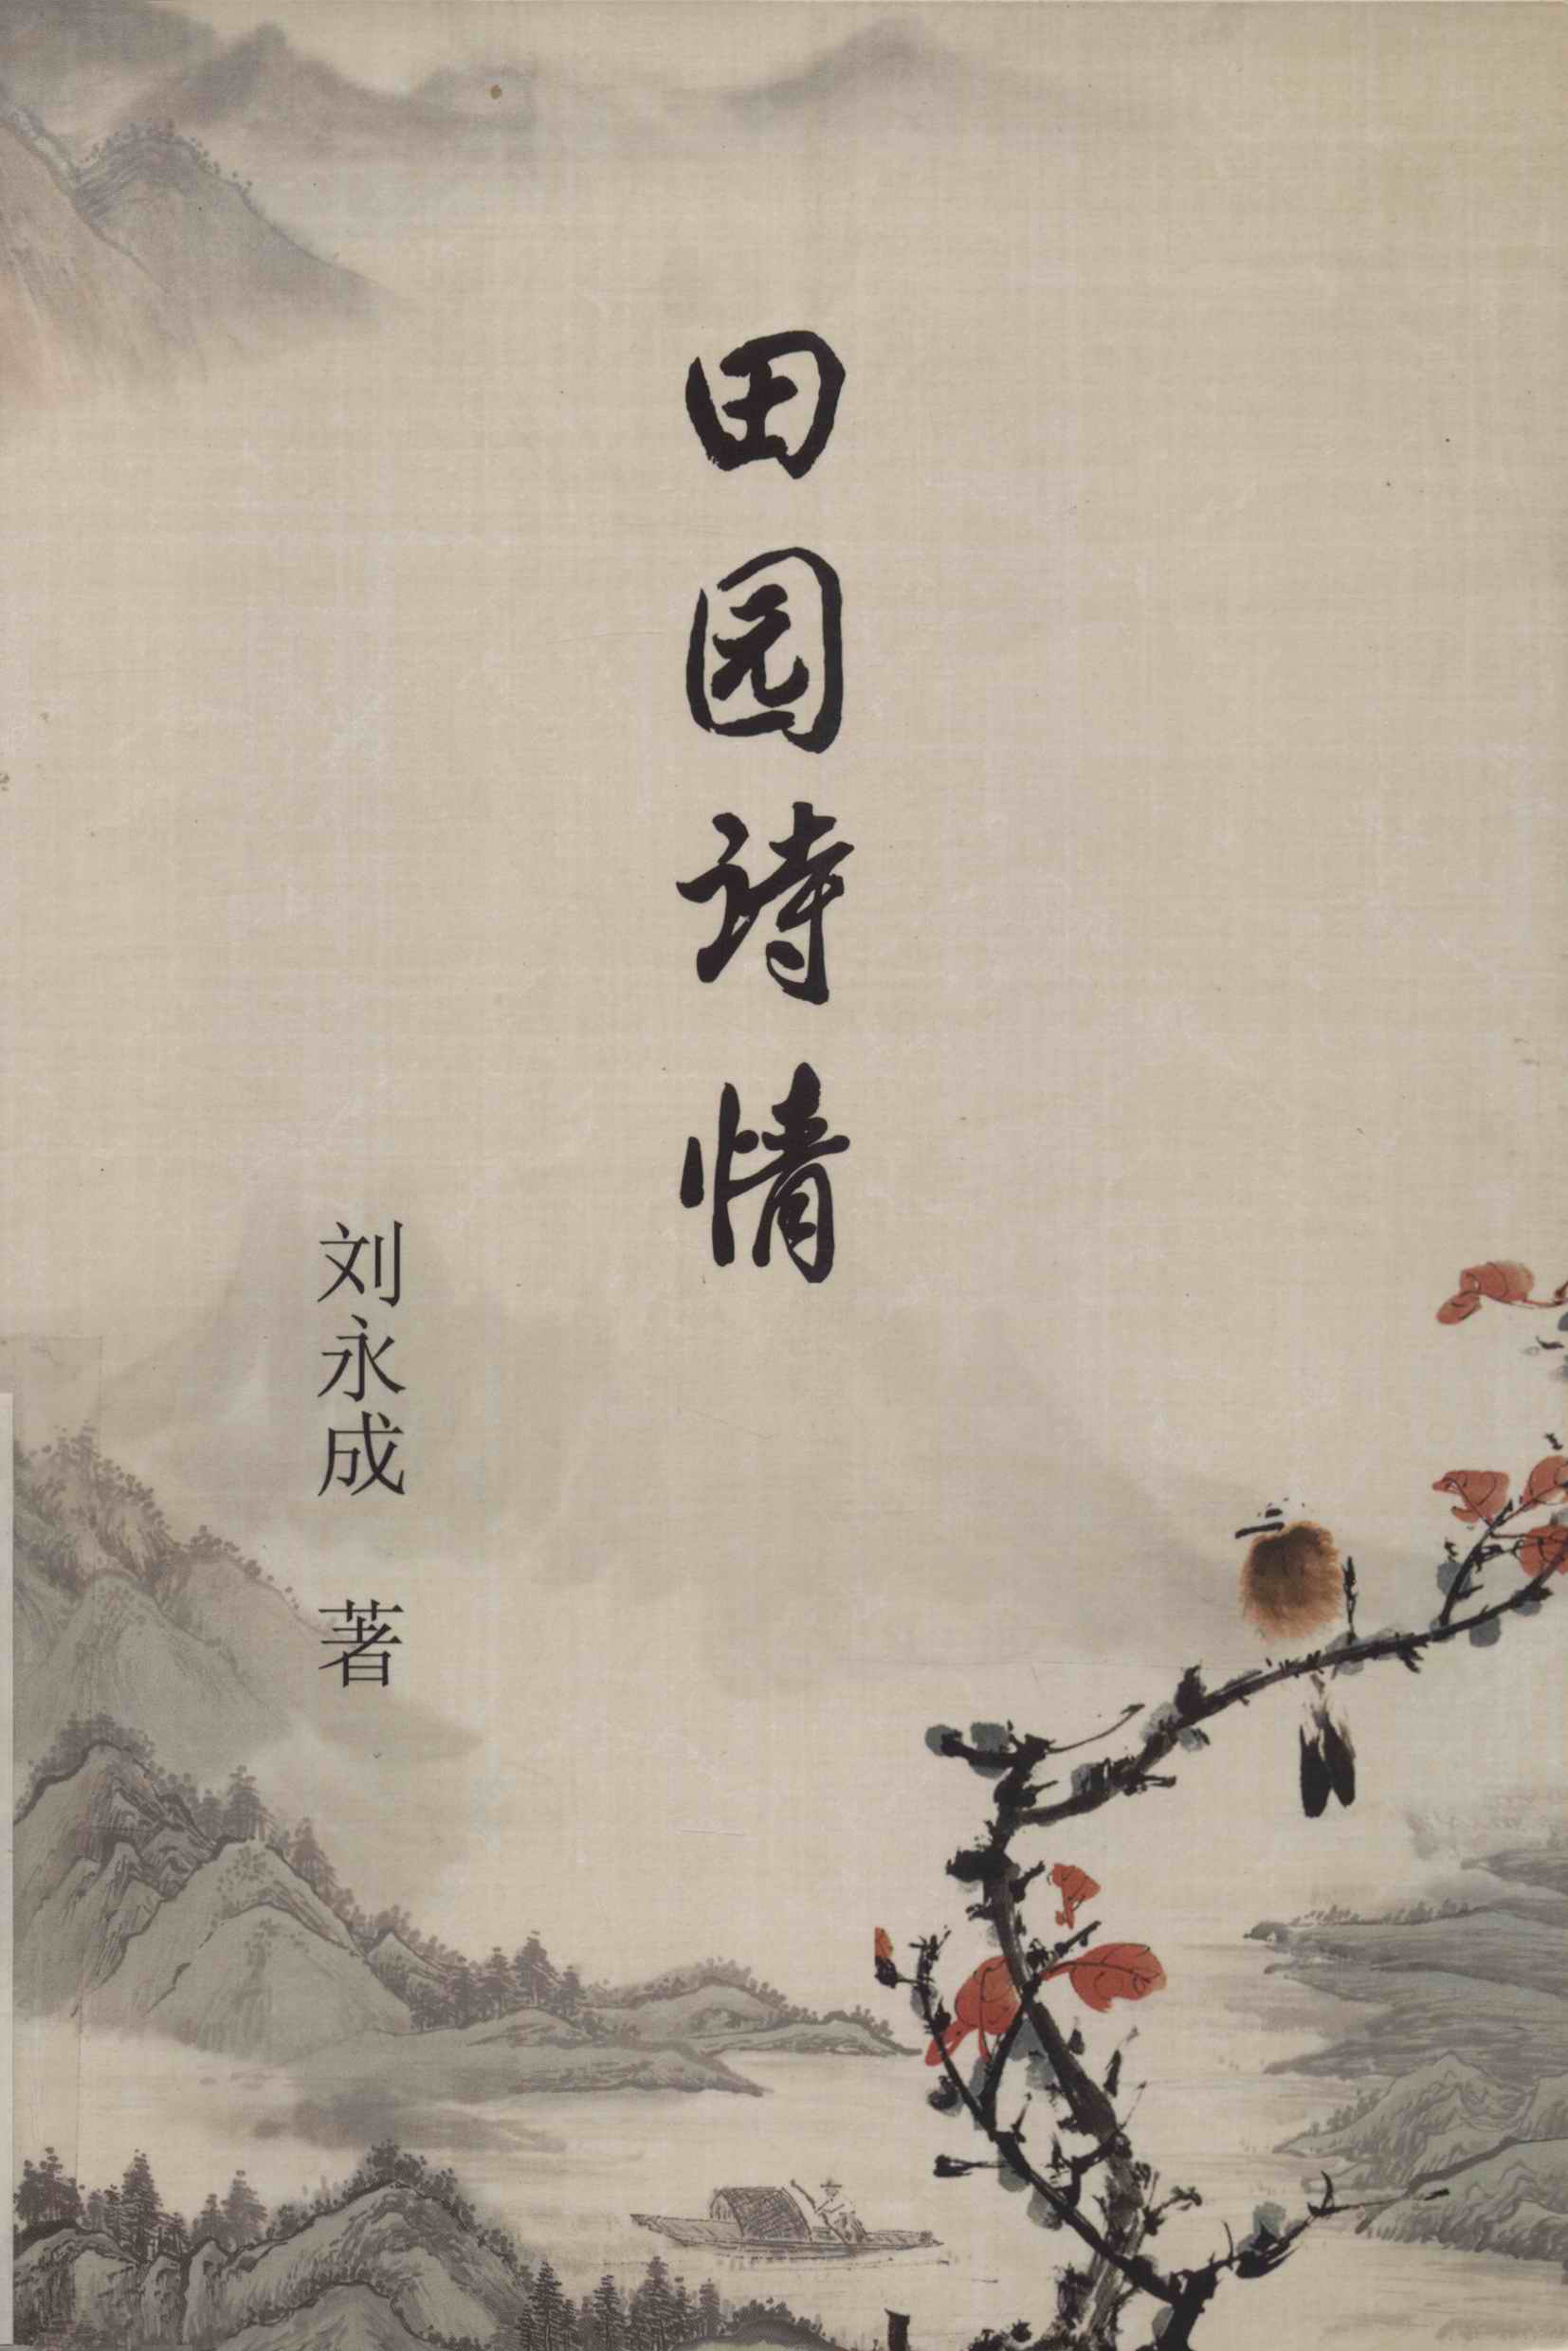 田园诗情
刘永成 著